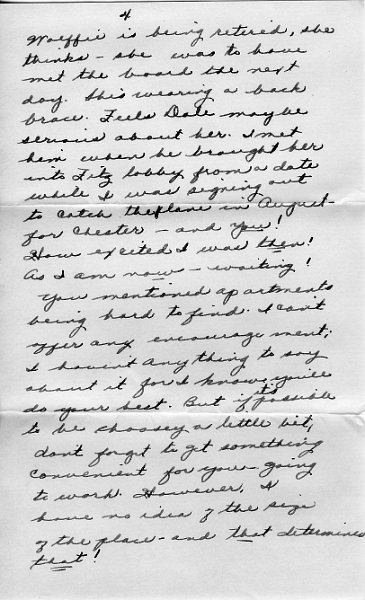 4
Wolffie is being retired, she
thinks - she was to have
met the board the next
day. She's wearing a back
brace. Feels Dale maybe
serious about her. I met
him when he brought her
into Fitz lobby from a date
while I was signing out
to catch the plane in August -
for Chester - and you!
How excited I was then!
As I am now - waiting!
You mentioned apartments
being hard to find. I can't
offer any encouragement;
I haven't anything to say
about it for I know you'll
do your best. But if it's possible
to be choosey a little bit,
dont forget to get something
convenient for your going
to work. However, I
have no idea of the size
of the place - and that determines
that!